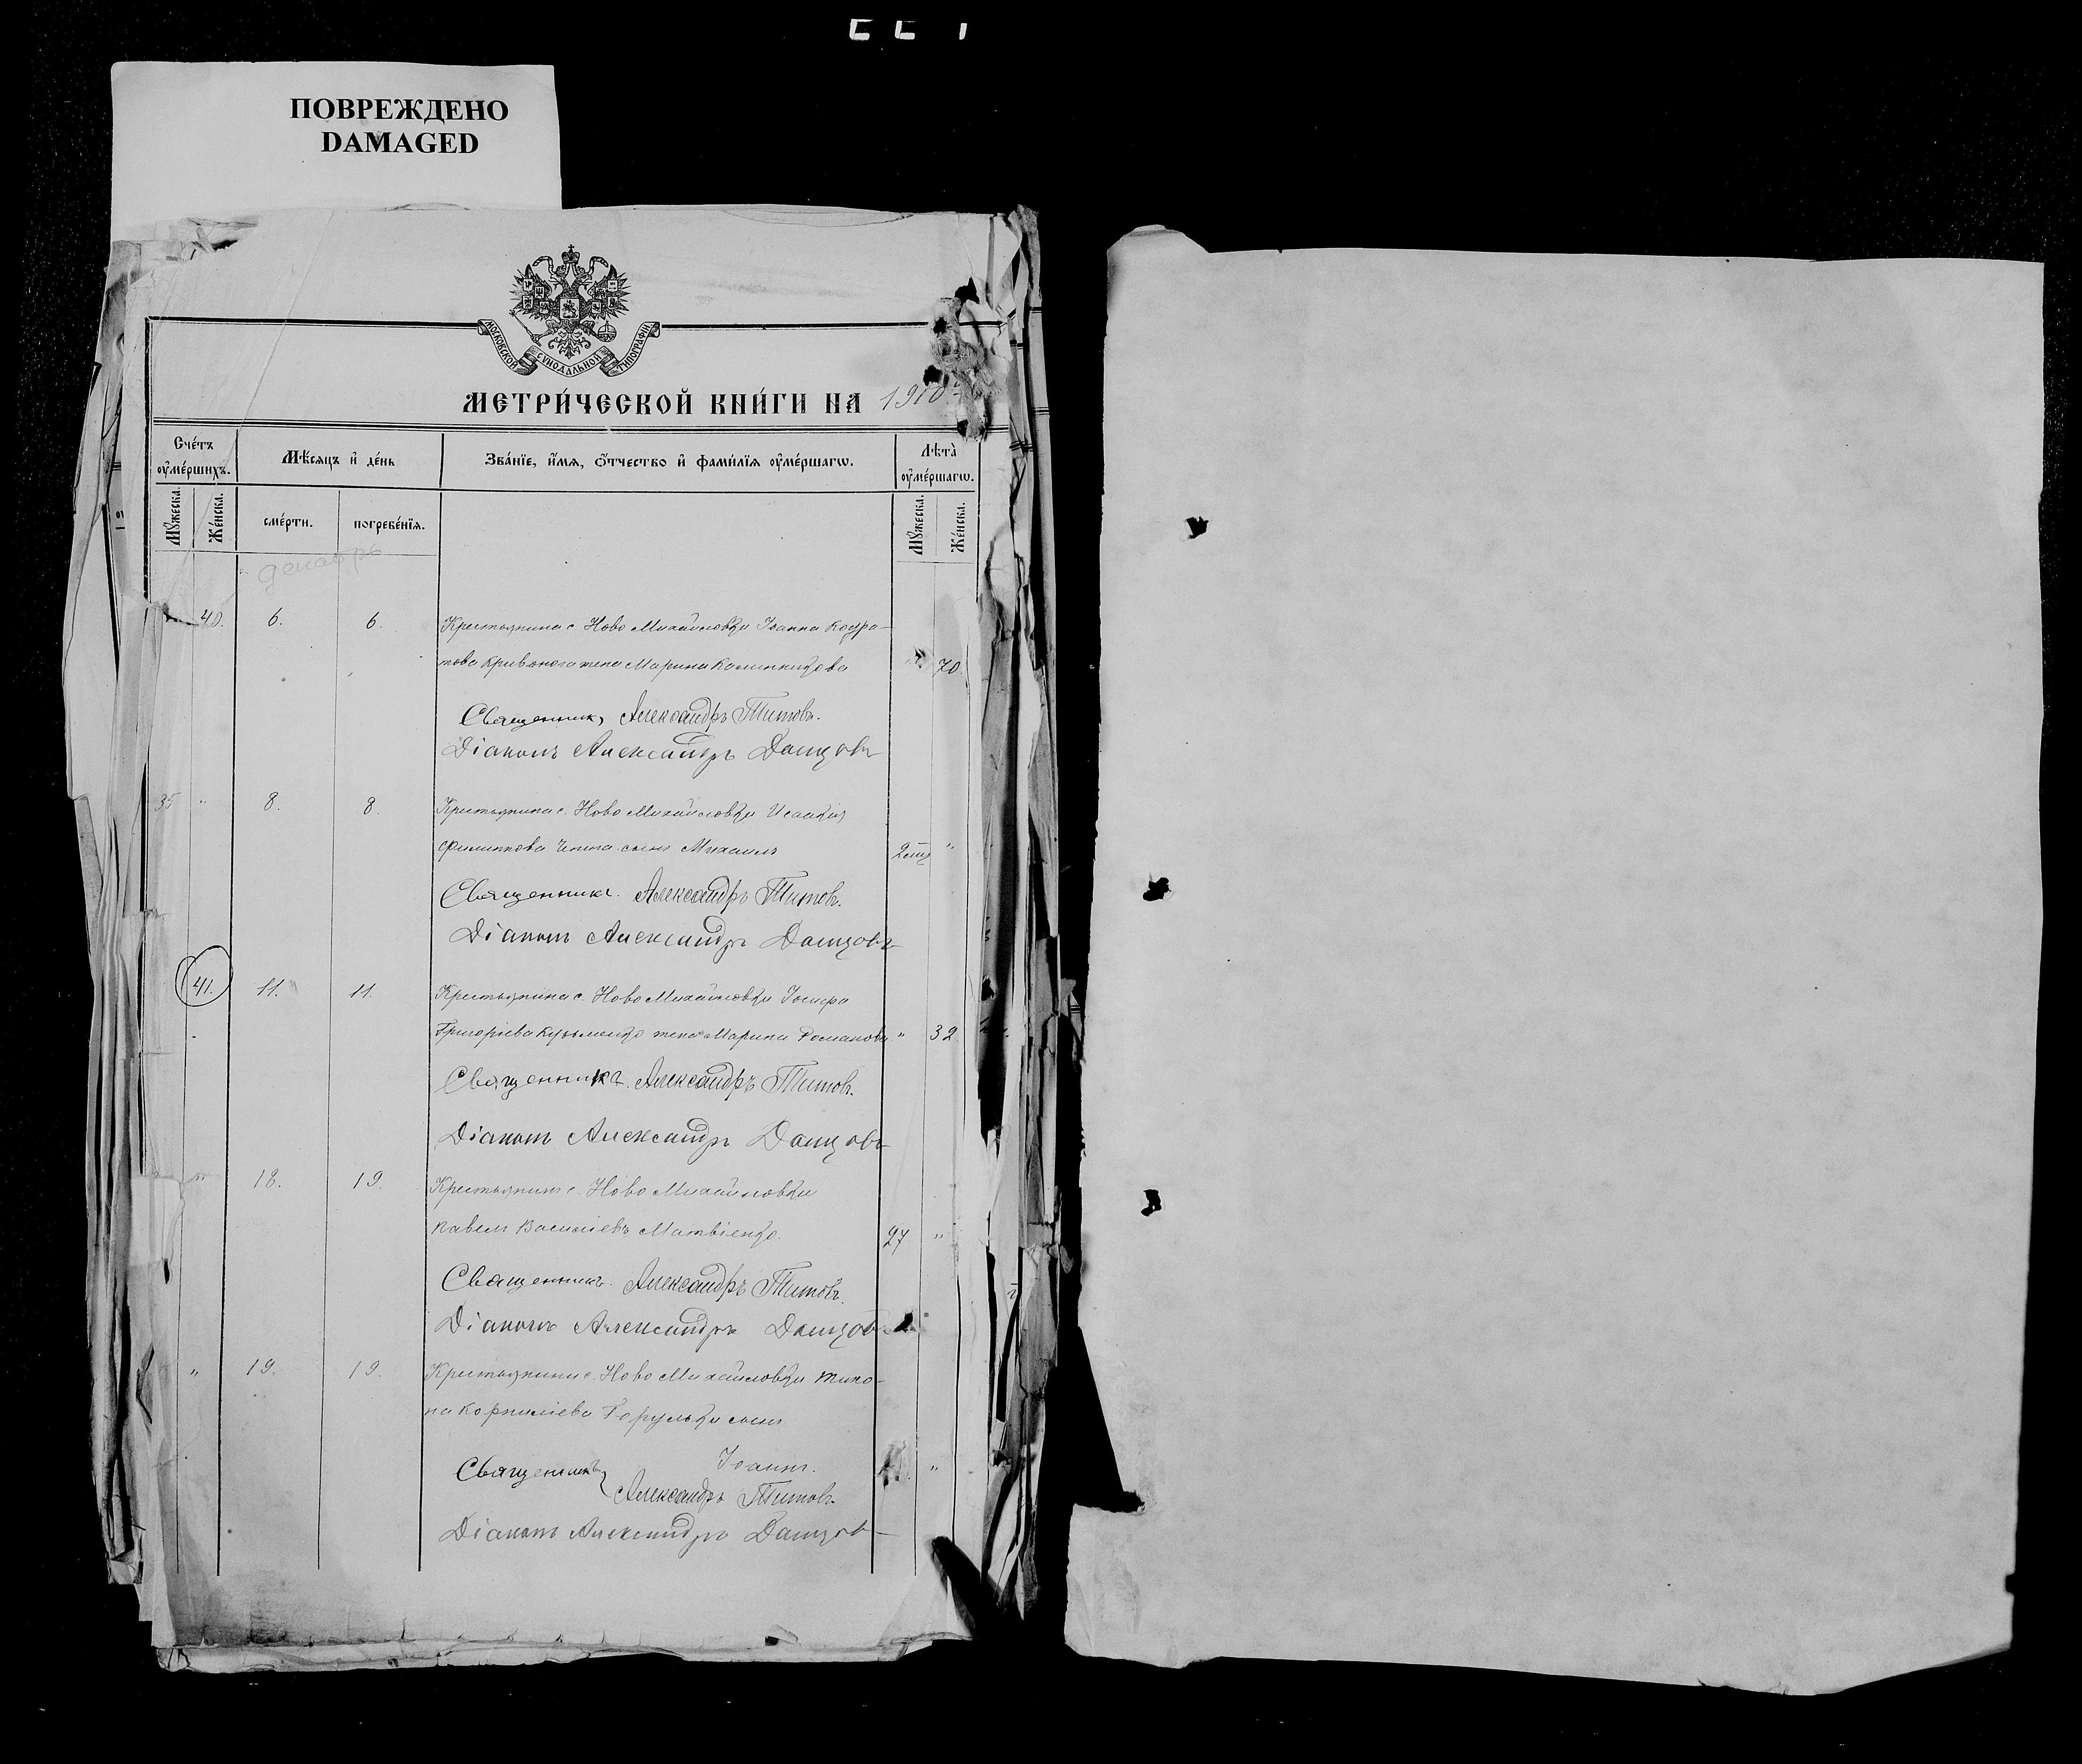 ПОВРЕЖДЕНО
DAMAGED
МОСКОВСКОЙ СѴНОДАЛЬНОЙ ТИПОГРАФІИ
МЕТРИ́ЧЕСКОЙ КНИ́ГИ НА 1910
Сче́тъ оу҆ме́ршихъ.
Мѣ́сяцъ и҆ де́нь
Зва́нїе, и҆́мѧ, ѻ҆́тчество и҆ фами́лїѧ оу҆ме́ршагѡ.
Лѣта̀ оу҆ме́ршагѡ.
Мꙋ́жеска.
Же́нска.
сме́рти.
погребе́нїѧ.
Мꙋ́жеска.
Же́нска.
декабрь
40. 6. 6. Крестьянина с. Ново Михайловки Іоанна Кодра-
това Кривоноса жена Марина Калинникова " 70.
Священникъ Александръ Титовъ.
Діаконъ Александръ Донцовъ
35 " 8. 8. Крестьянина с. Ново Михайловки Исаакія
Филиппова Чепига сынъ Михаилъ 2 мц "
Священникъ. Александръ Титовъ.
Діаконъ Александръ Донцовъ
41. 11. 11. Крестьянина с. Ново Михайловки Іосифа
Григоріева Кузьменко жена Марина Романова " 32
Священникъ. Александръ Титовъ.
Діаконъ Александръ Донцовъ
" 18. 19. Крестьянинъ с. Ново Михайловки
Павелъ Васильевъ Матвіенко. 27 "
Священникъ. Александръ Титовъ.
Діаконъ Александръ Донцовъ
" 19. 19. Крестьянина с. Ново Михайловки Тихо-
на Корниліева Горульки сынъ
Іоаннъ. "
Священникъ Александръ Титовъ.
Діаконъ Александръ Донцовъ